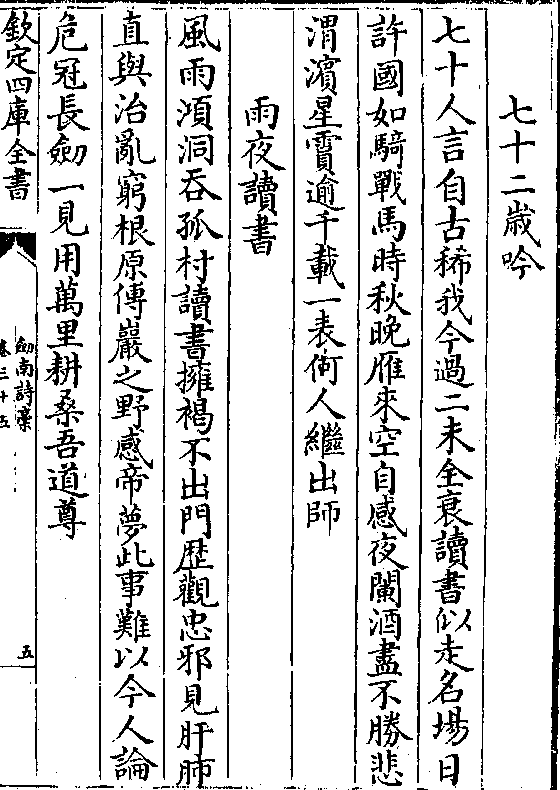 七十二歲吟
七十人言自古稀我今過二未全衰讀書似走名場日
許國如騎戰馬時秋晚雁來空自感夜闌酒盡不勝悲
渭濱星霣逾千載一表何人繼出師
雨夜讀書
風雨澒洞吞孤村讀書擁褐不出門歴觀忠邪見肝肺
直與治亂窮根原傅巖之野感帝夢此事難以今人論
危冠長劒一見用萬里耕桑吾道尊
欽定四庫全書
劒南詩藁
卷三十五
五